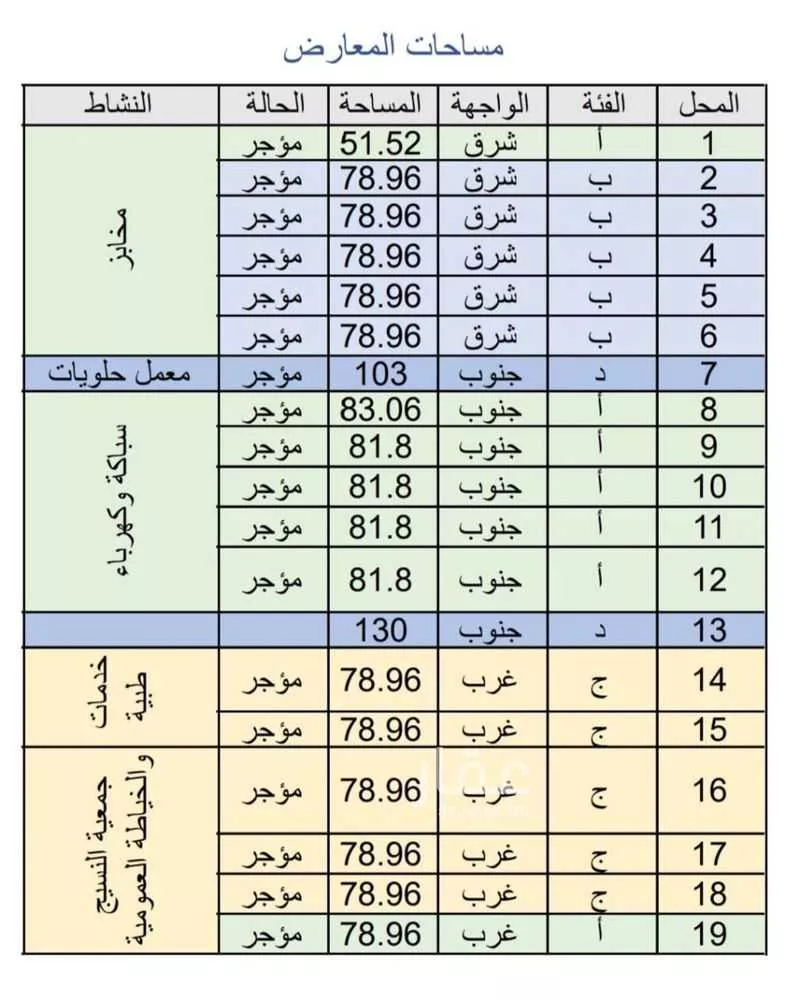 مساحات المعارض
المحل الفئة الواجهة المساحة الحالة النشاط
1 أ شرق 51.52 مؤجر
2 ب شرق 78.96 مؤجر
3 ب شرق 78.96 مؤجر
مخابز
4 ب شرق 78.96 مؤجر
5 ب شرق 78.96 مؤجر
6 ب شرق 78.96 مؤجر
7 د جنوب 103 مؤجر معمل حلويات
8 أ جنوب 83.06 مؤجر
9 أ جنوب 81.8 مؤجر
10 أ جنوب 81.8 مؤجر
سباكة وكهرباء
11 أ جنوب 81.8 مؤجر
12 أ جنوب 81.8 مؤجر
13 د جنوب 130
14 ج غرب 78.96 مؤجر
خدمات
طبية
15 ج غرب 78.96 مؤجر
16 ج غرب 78.96 مؤجر
عقار
جمعية النسيج
والخياطة العمومية
17 ج غرب 78.96 مؤجر
18 ج غرب 78.96 مؤجر
19 أ غرب 78.96 مؤجر